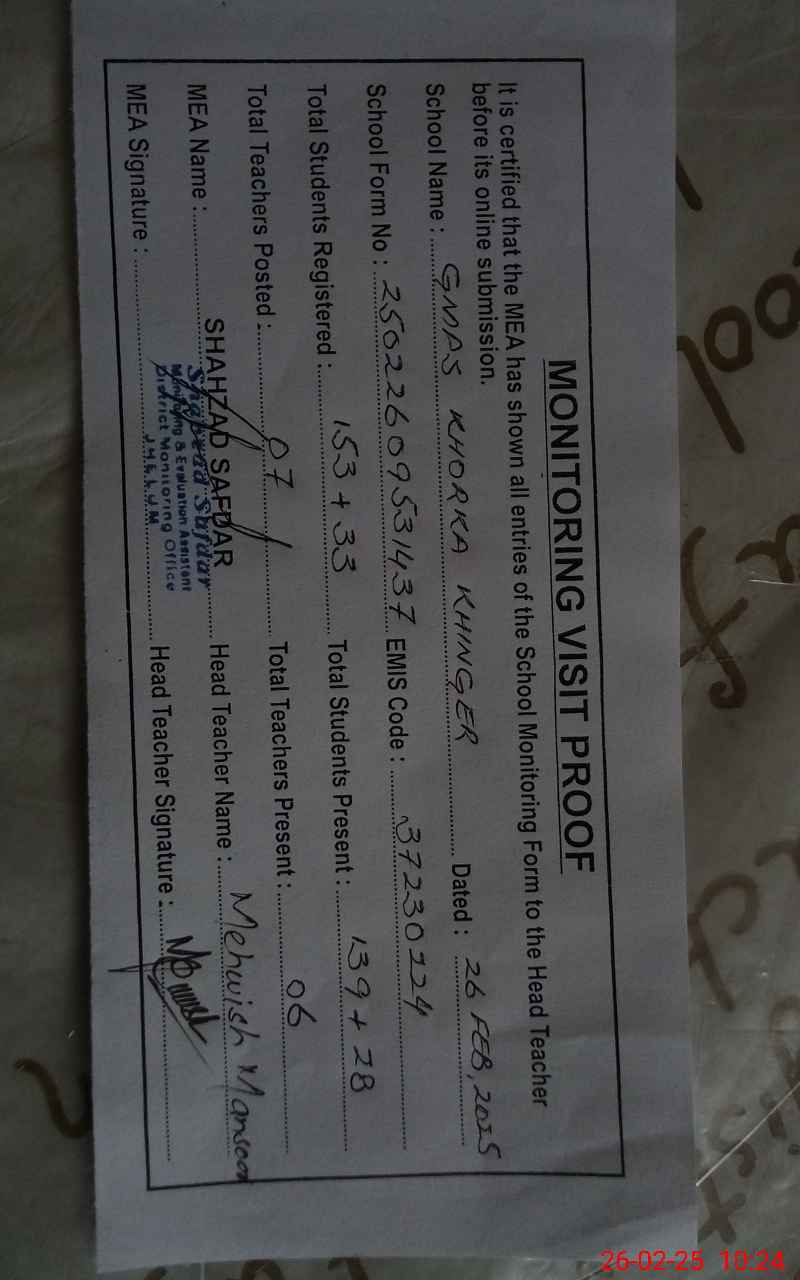 MONITORING VISIT PROOF
It is certified that the MEA has shown all entries of the School Monitoring Form to the Head Teacher
before its online submission.
School Name : GMPS KHORKA KHINGER Dated : 26 FEB, 2025
School Form No : 25022609531437 EMIS Code : 37230224
Total Students Registered : 153 + 33 Total Students Present : 139 + 28
Total Teachers Posted : 07 Total Teachers Present : 06
MEA Name : SHAHZAD SAFDAR Head Teacher Name : Mehwish Mansoor
Shahzad Safdar
Monitoring & Evaluation Assistant
District Monitoring Office
JHELUM
MEA Signature : Head Teacher Signature :
26-02-25 10:24